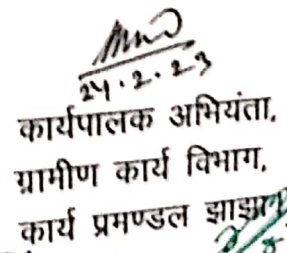 24.2.23
कार्यपालक अभियंता,
ग्रामीण कार्य विभाग,
कार्य प्रमण्डल झाझा